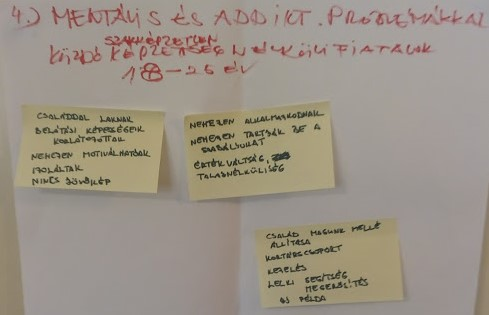 4.) MENTÁLIS ÉS ADDIKT. PROBLÉMÁKKAL
SZAKKÉPZETLEN
KÜZDŐ KÉPZETTSÉG NÉLKÜLI FIATALOK
18-25 ÉV
CSALÁDDAL LAKNAK
BELÁTÁSI KÉPESSÉGEIK
KORLÁTOZOTTAK
NEHEZEN MOTIVÁLHATÓAK
IZOLÁLTAK
NINCS JÖVŐKÉP
NEHEZEN ALKALMAZKODNAK
NEHEZEN TARTJÁK BE A
SZABÁLYOKAT
ÉRTÉKVÁLTSÁG,
TALAJNÉLKÜLISÉG
CSALÁD MAGUNK MELLÉ
ÁLLÍTÁSA
KORTÁRSCSOPORT
KEZELÉS
LELKI SEGÍTSÉG
MEGERŐSÍTÉS
ÚJ PÉLDA